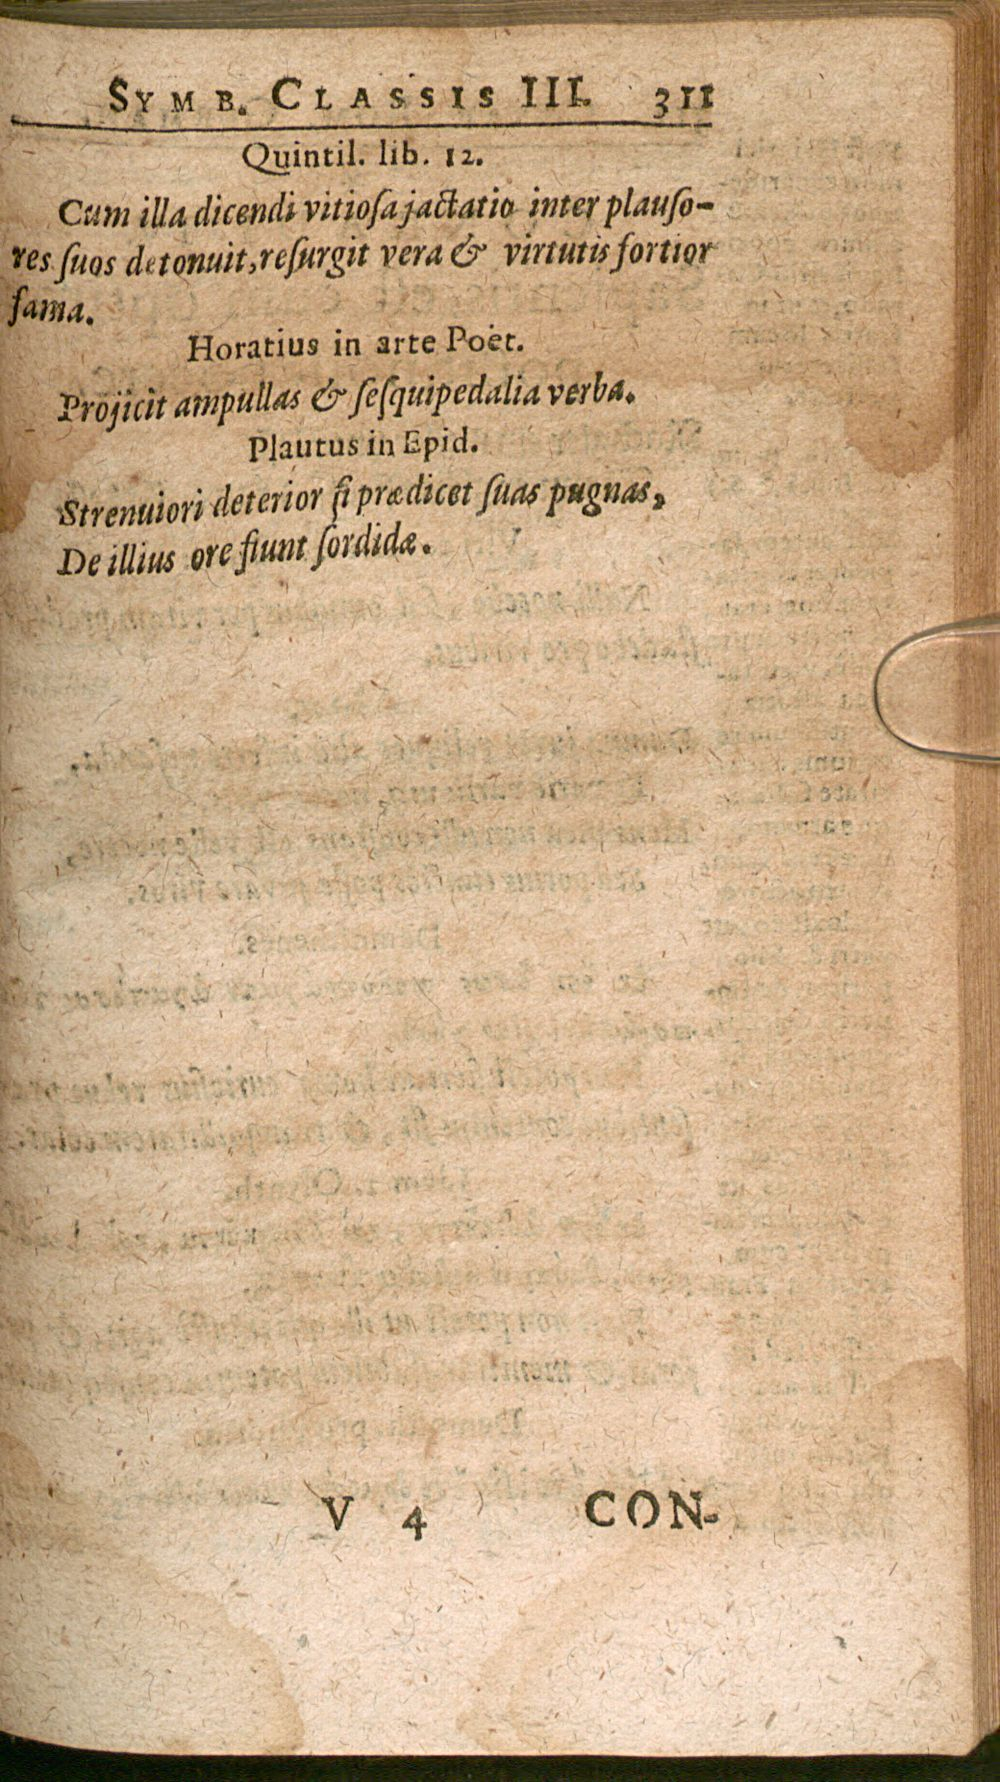 SYMB. CLASSIS III. 311
Quintil. lib. 12.
Cum illa dicendi vitioſa jactatio inter plauſo-
res ſuos detonuit, reſurgit vera & virtutis fortior
fama.
Horatius in arte Poët.
Projicit ampullas & ſeſquipedalia verba.
Plautus in Epid.
Strenuiori deterior ſi prædicet ſuas pugnas,
De illius ore fiunt ſordidæ.
V 4 CON-